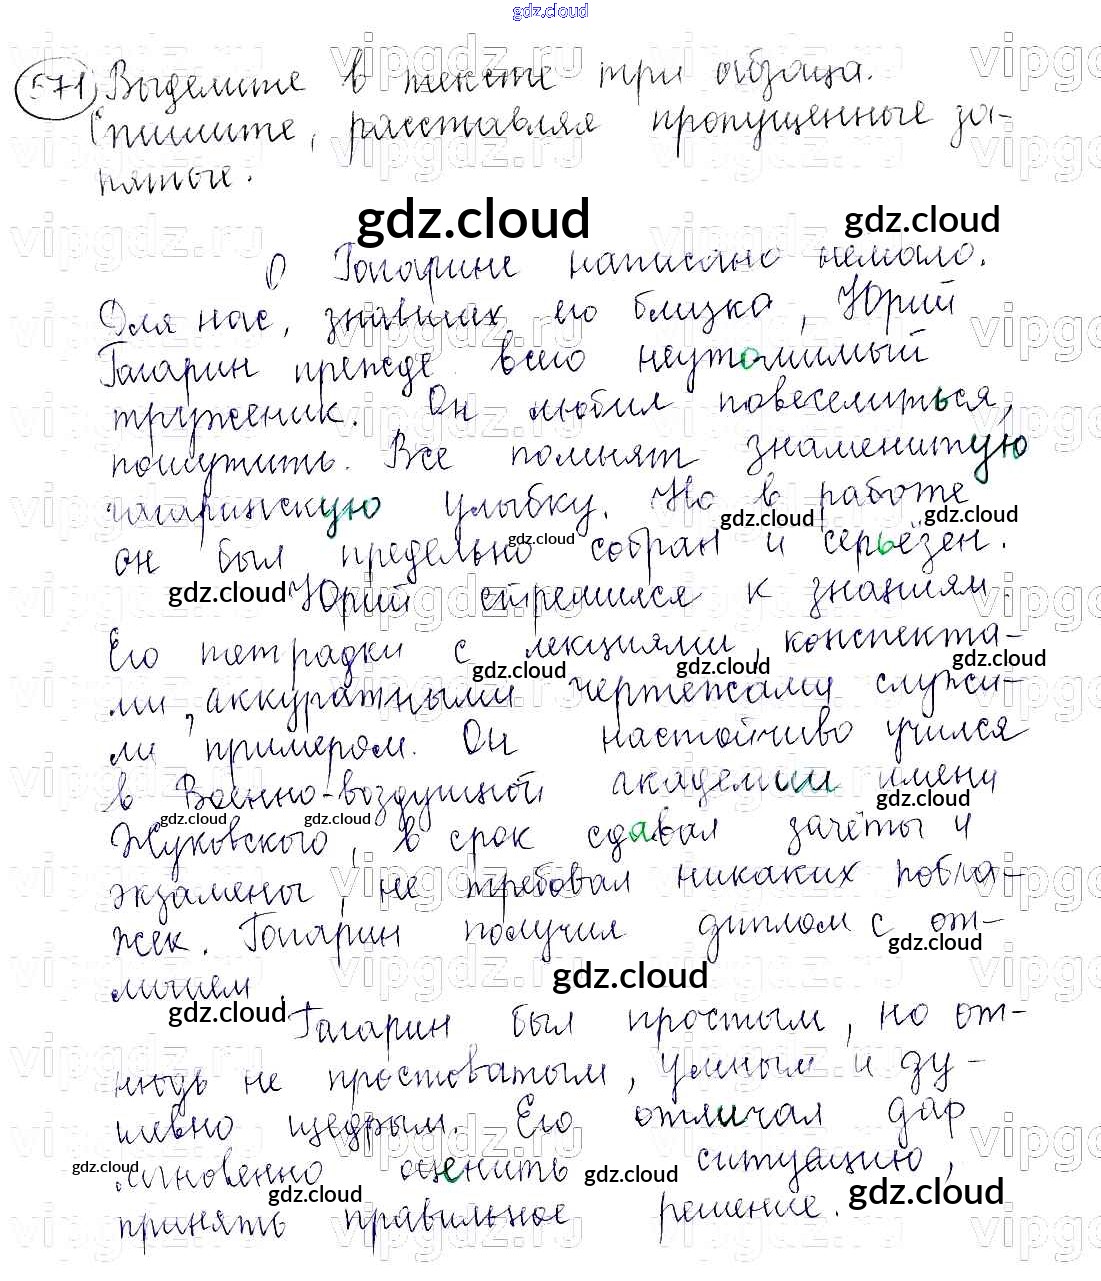 gdz.cloud
571 Выделите в тексте три абзаца.
Спишите, расставляя пропущенные за-
пятые.
gdz.cloud gdz.cloud
О Гагарине написано немало.
Для нас, знавших его близко, Юрий
Гагарин прежде всего неутомимый
труженик. Он любил повеселиться,
пошутить. Все помнят знаменитую
гагаринскую улыбку. Но в работе
gdz.cloud gdz.cloud gdz.cloud
он был предельно собран и серьёзен.
gdz.cloud Юрий стремился к знаниям.
Его тетрадки с лекциями, конспекта-
gdz.cloud gdz.cloud gdz.cloud
ми, аккуратными чертежами служи-
ли примером. Он настойчиво учился
в Военно-воздушной академии имени
gdz.cloud gdz.cloud gdz.cloud
Жуковского, в срок сдавал зачёты и
экзамены, не требовал никаких побла-
жек. Гагарин получил диплом с от-
gdz.cloud
личием.
gdz.cloud gdz.cloud
Гагарин был простым, но от-
нюдь не простоватым, умным и ду-
шевно щедрым. Его отличал дар
мгновенно оценить ситуацию,
gdz.cloud gdz.cloud gdz.cloud gdz.cloud
принять правильное решение.
vipgdz.ru